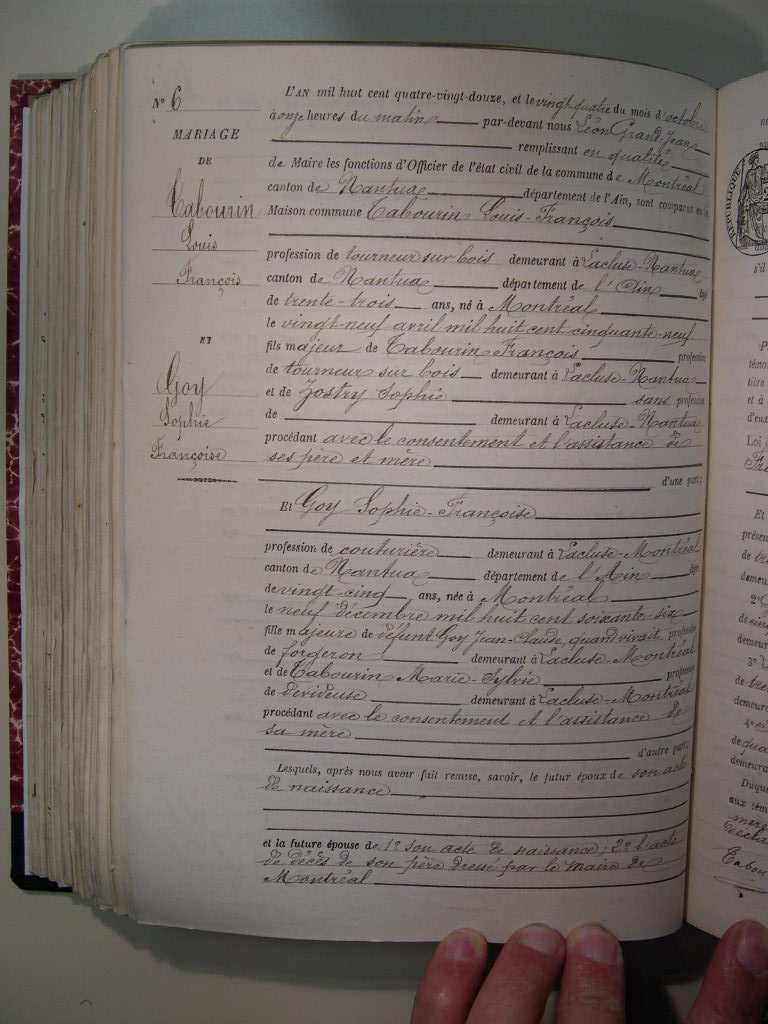 N° 6
MARIAGE
DE
Cabourin
Louis
François
ET
Goy
Sophie
Françoise
L'AN mil huit cent quatre-vingt-douze, et le vingt quatre du mois d'octobre
à onze heures du matin par-devant nous Léon Grandjean
remplissant en qualité
de Maire les fonctions d'Officier de l'état civil de la commune de Montréal
canton de Nantua département de l'Ain, sont comparus en la
Maison commune Cabourin Louis-François
profession de tourneur sur bois demeurant à Lacluse-Nantua
canton de Nantua département de l'Ain âgé
de trente-trois ans, né à Montréal
le vingt-neuf avril mil huit cent cinquante-neuf
fils majeur de Cabourin François profession
de tourneur sur bois demeurant à Lacluse-Nantua
et de Jostry Sophie sans profession
de demeurant à Lacluse-Nantua
procédant avec le consentement et l'assistance de
ses père et mère
d'une part;
Et Goy Sophie-Françoise
profession de couturière demeurant à Lacluse-Montréal
canton de Nantua département de l'Ain âgée
de vingt-cinq ans, née à Montréal
le neuf décembre mil huit cent soixante-six
fille majeure de défunt Goy Jean-Claude, quand vivait profession
de forgeron demeurant à Lacluse-Montréal
et de Cabourin Marie-Sylvie profession
de devideuse demeurant à Lacluse-Montréal
procédant avec le consentement et l'assistance de
sa mère
d'autre part;
Lesquels, après nous avoir fait remise, savoir, le futur époux de son acte
de naissance
et la future épouse de 1° son acte de naissance; 2° l'acte
de décès de son père dressé par le maire de
Montréal
RÉPUBLIQUE